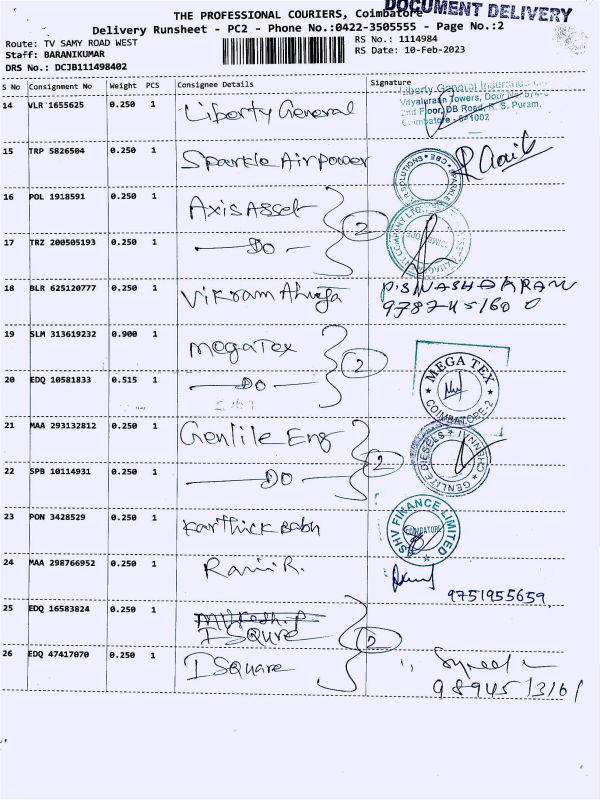 DOCUMENT DELIVERY
THE PROFESSIONAL COURIERS, Coimbatore
Delivery Runsheet - PC2 - Phone No.:0422-3505555 - Page No.:2
Route: TV SAMY ROAD WEST
RS No.: 1114984
Staff: BARANIKUMAR
RS Date: 10-Feb-2023
DRS No.: DCJB111498402
S No Consignment No Weight PCS Consignee Details Signature
14 VLR 1655625 0.250 1 Liberty General
Liberty General Insurance
Vayaluraan Towers, Door No
2nd Floor, DB Road, R. S. Puram,
Coimbatore
15 TRP 5826504 0.250 1 Sparkle Airpower
16 POL 1918591 0.250 1 Axis Asset
2
17 TRZ 200505193 0.250 1 DO
18 BLR 625120777 0.250 1 Vikram Ahuja
19 SLM 313619232 0.900 1 Mega Tex
2
MEGA TEX
COIMBATORE-2
20 EDQ 10581833 0.515 1 DO
21 MAA 293132812 0.250 1 Genlite Eng
GENLITE DIESELS
2
22 SPB 10114931 0.250 1 DO
23 PON 3428529 0.250 1 Karthick Babu
FINANCE LIMITED
COIMBATORE
24 MAA 298766952 0.250 1 Ravi R.
9751955659
25 EDQ 16583824 0.250 1
I SQure
2
26 EDQ 47417070 0.250 1 I Square